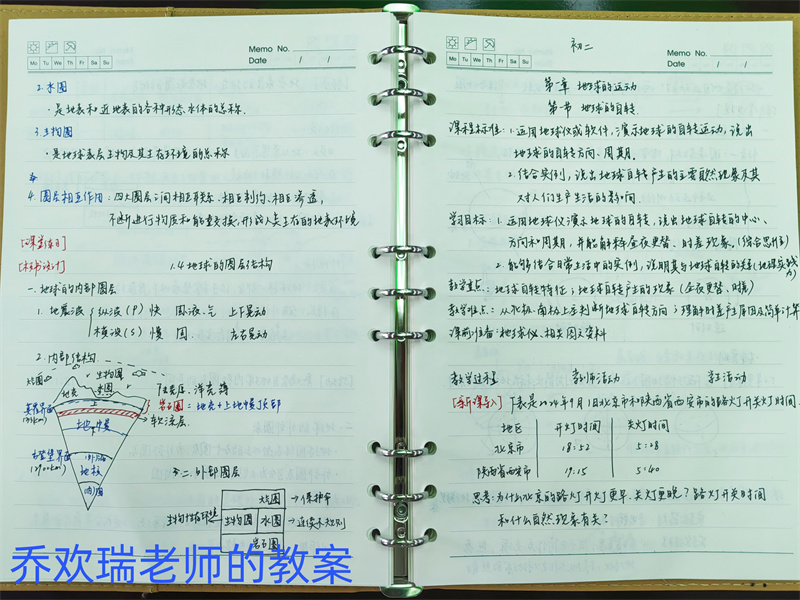 Memo No.
Date / /
Mo Tu We Th Fr Sa Su
2. 水圈
·是地表和近地表的各种形态水体的总称.
3. 生物圈
·是地球表层生物及其生存环境的总称
4. 圈层相互作用:四大圈层之间相互联系、相互制约、相互渗透,
不断进行物质和能量交换,形成人类生存的地表环境
[课堂练习]
[板书设计] 1.4 地球的圈层结构
一. 地球的内部圈层
1. 地震波 纵波(P) 快 固、液、气 上下晃动
横波(S) 慢 固. 左右晃动
2. 内部结构
大气圈 生物圈
地壳 水圈
陆壳厚、洋壳薄
岩石圈=地壳+上地幔顶部
软流层
莫霍界面
地幔
古登堡界面
(2900km)
外核
地核
内核
二. 外部圈层
大气圈 →保护伞
生物圈 水圈 →连续不规则
岩石圈
乔欢瑞老师的教案
初二
Memo No.
Date / /
Mo Tu We Th Fr Sa Su
第一章 地球的运动
第一节 地球的自转.
课程标准:1. 运用地球仪或软件,演示地球的自转运动,说出
地球的自转方向、周期.
2. 结合实例,说出地球自转产生的主要自然现象及其
对人们生产生活的影响.
学习目标:1. 运用地球仪演示地球的自转,说出地球自转的中心、
方向和周期,并能解释昼夜更替、时差现象.(综合思维)
2. 能够结合日常生活中的实例,说明其与地球自转的关系(地理实践力)
教学重点:地球自转特征;地球自转产生的现象(昼夜更替、时差)
教学难点:从北极、南极上空判断地球自转方向;理解时差产生原因及简单计算
课前准备:地球仪、相关图文资料
教学过程 教师活动 学生活动
[新课导入] 下表是2024年9月1日北京市和陕西省西安市的路灯开关灯时间.
地区 开灯时间 关灯时间
北京市 18:52 5:28
陕西省西安市 19:15 5:40
思考:为什么北京的路灯开灯更早、关灯更晚?路灯开关时间
和什么自然现象有关?